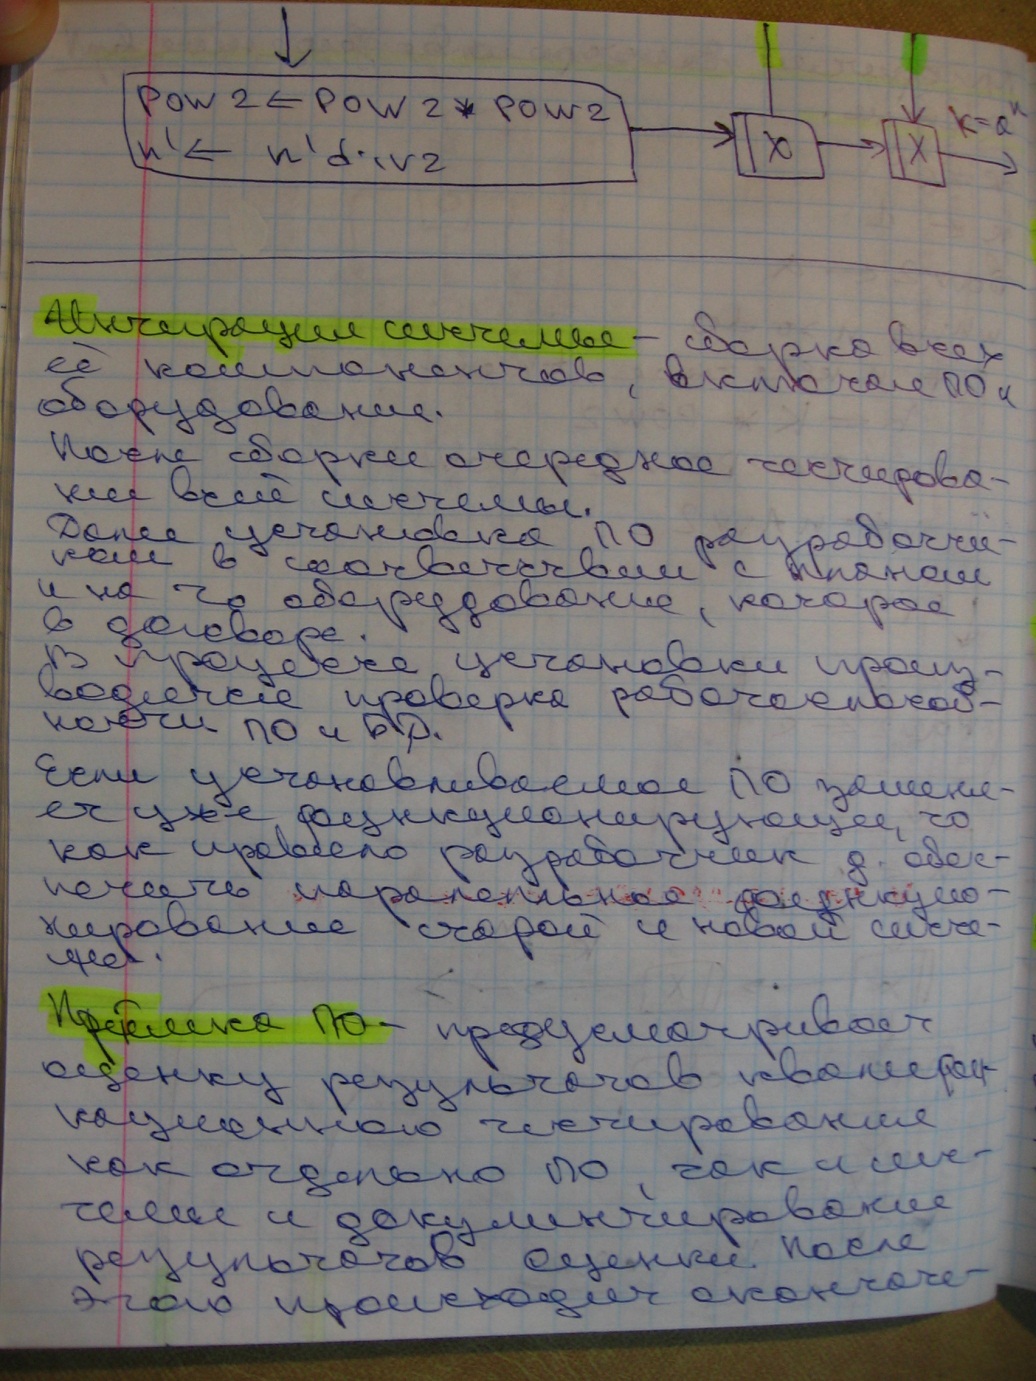 POW2 ← POW2 * POW2
n' ← n' div 2
X
X
k=aⁿ
Интеграция системы - сборка всех
её компонентов, включая ПО и
оборудование.
После сборки очередное тестирова-
ние всей системы.
Далее установка ПО разработчи-
ком в соответствии с планом
и на то оборудование, которое
в договоре.
В процессе установки произ-
водится проверка работоспособ-
ности ПО и БД.
Если устанавливаемое ПО заменя-
ет уже функционирующее, то
как правило разработчик д. обес-
печить параллельное функцио-
нирование старой и новой систе-
мы.
Приёмка ПО - предусматривает
оценку результатов квалифи-
кационного тестирования
как отдельно ПО, так и сис-
темы и документирование
результатов оценки. После
этого происходит окончате-